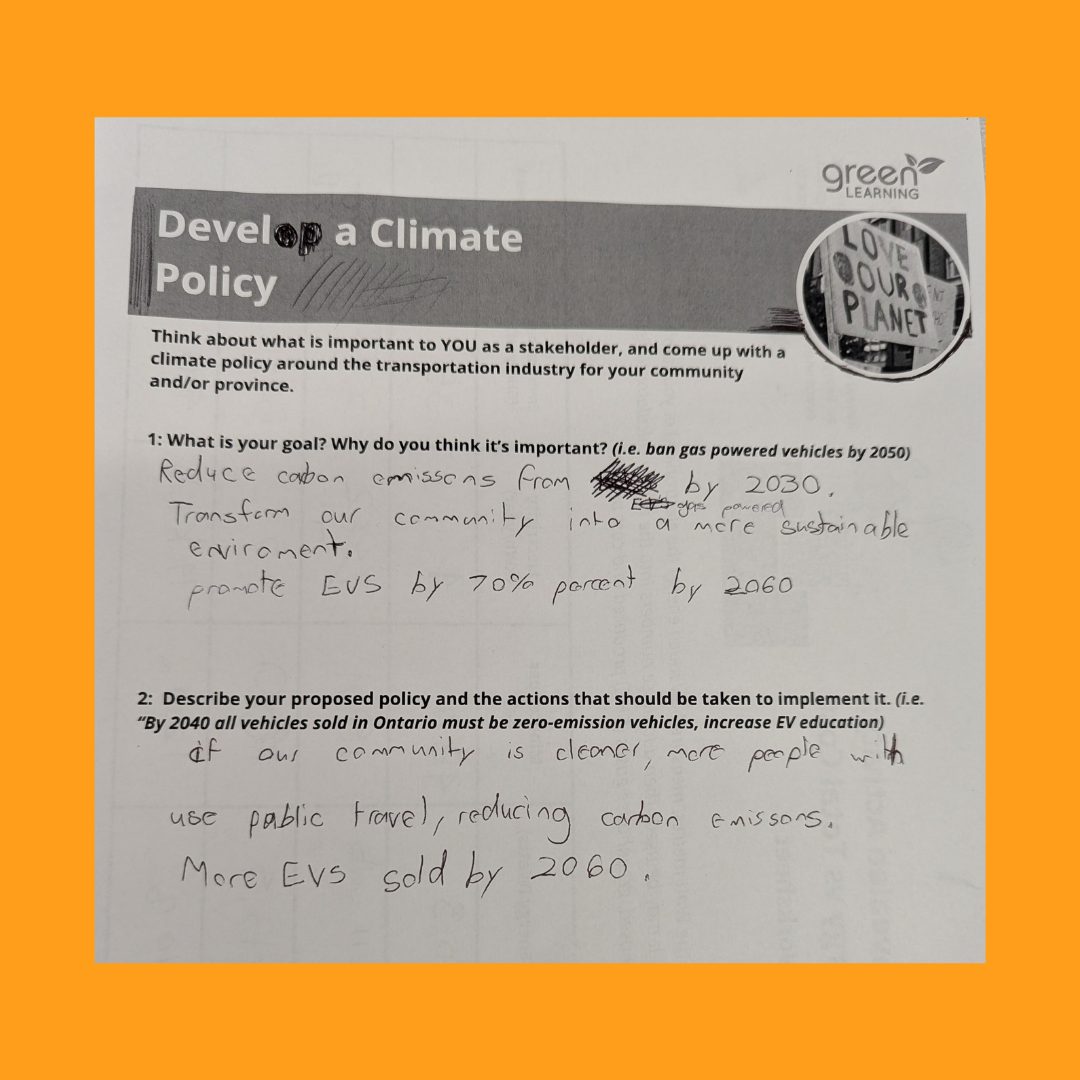 green
LEARNING
Develop a Climate
Policy
LOVE
OUR
PLANET
Think about what is important to YOU as a stakeholder, and come up with a
climate policy around the transportation industry for your community
and/or province.
1: What is your goal? Why do you think it's important? (i.e. ban gas powered vehicles by 2050)
Reduce carbon emissons from by 2030.
gas powered
Transform our community into a more sustainable
enviroment.
promote EVS by 70% percent by 2060
2: Describe your proposed policy and the actions that should be taken to implement it. (i.e.
"By 2040 all vehicles sold in Ontario must be zero-emission vehicles, increase EV education)
if our community is cleaner, more people will
use public travel, reducing carbon emissons.
More EVs sold by 2060.